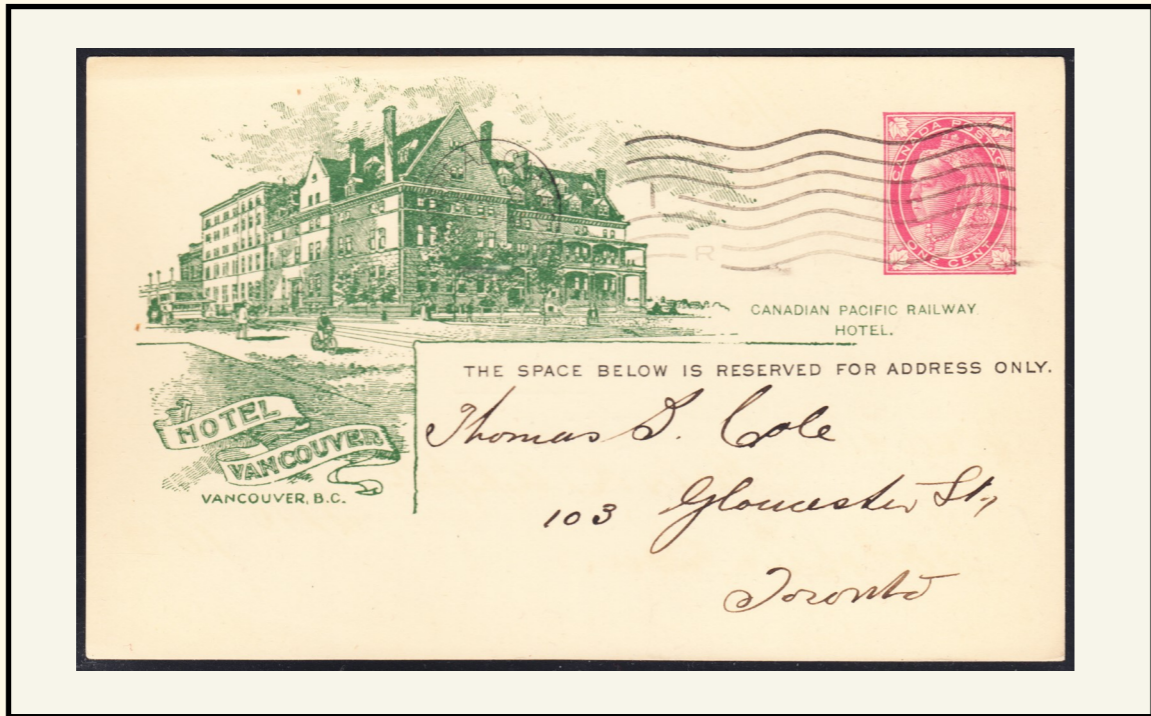 CANADA POSTAGE
ONE CENT
CANADIAN PACIFIC RAILWAY
HOTEL.
THE SPACE BELOW IS RESERVED FOR ADDRESS ONLY.
HOTEL
VANCOUVER
VANCOUVER, B.C.
Thomas S. Cole
103 Gloucester St,
Toronto